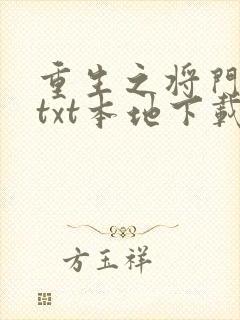 重生之将门
txt本地下载
方玉祥